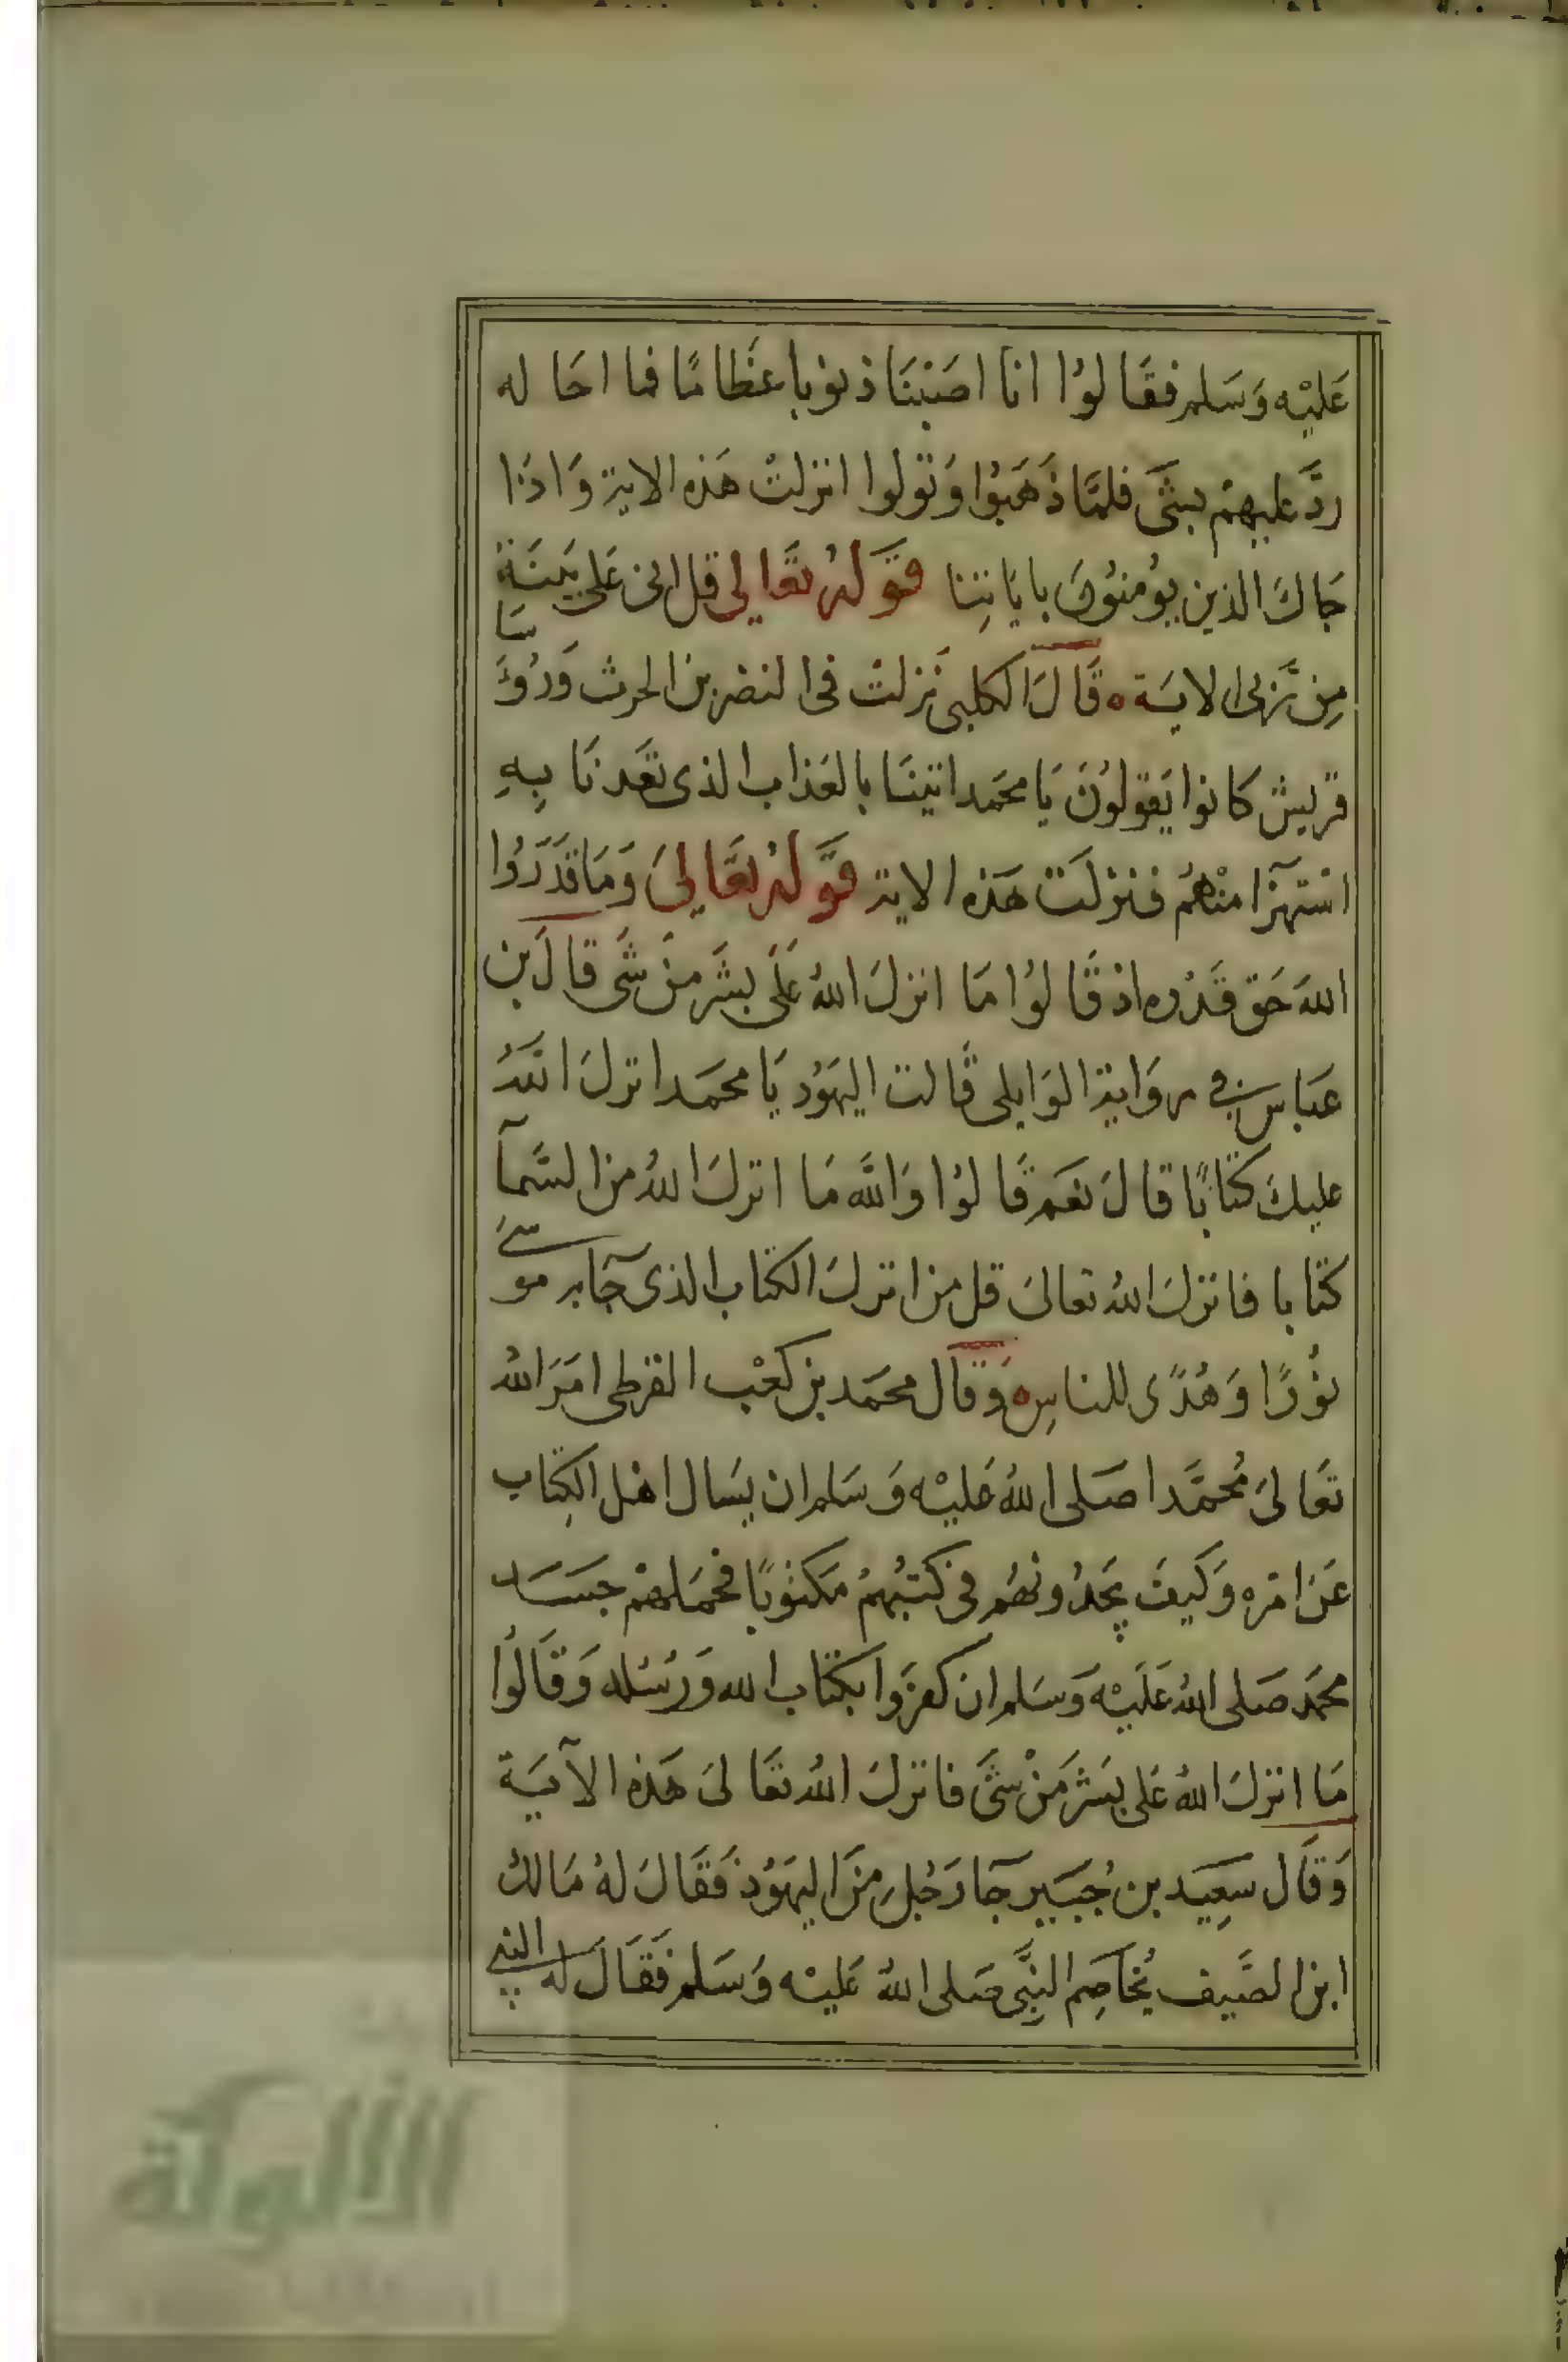 عَليْه وَسَلم فقَالوُا انا اصَبْنَا ذنوبا عَظامًا فما اخَاله
ردَّ عليهمْ بشَى فلمَّا ذهَبُوا وَتولوا انزلتْ هَذه الاية وَاذَا
جَاكَ الذين يوُمنوُنَ باياتِنا قوَله تعَالى قل انى عَلى بَينَة
مِن رَّبى الاية قَالَ الكلبى نَزلت فى النضر بن الحرث وَرُؤسَا
قريش كانوا يَقولوُنَ يَا محمَد اتينَا بالعَذاب الذى تعَدنَا بِهِ
استهزآ منْهُم فنزلَت هَذه الاية قوَله تعَالىَ وَمَا قَدَرُوا
اللهَ حَق قَدْره اذ قَالوُا مَا انزلَ اللهُ عَلَى بشَر منْ شَى قالَ بن
عَباس فى روَاية الوَابلى قَالت اليهَوُد يَا محمَد انزلَ اللهُ
عليكَ كتَابًا قالَ نعَم قَالوُا وَاللهِ مَا انزلَ اللهُ منَ السَّمآ
كتَابا فانزلَ اللهُ تعالىَ قل من انزلَ الكتَاب الذى جَآ به موسى
نوُرًا وَهُدًى للناسِ وَقال محمَد بن كعْب القرظى امَرَ اللهُ
تعَالىَ مُحمَّدا صَلى اللهُ عَليْه وَسَلم ان يسَال اهْل الكِتَاب
عَنْ امْره وَكيفَ يجدُونهُم فى كتُبهمْ مَكتوُبًا فحمَلهمْ حسَد
محمَد صَلى اللهُ عَلَيْه وَسَلم ان كفرَوا بكتَاب الله وَرسُله وَقَالوُا
مَا انزلَ اللهُ عَلى بَشر منْ شَى فانزلَ اللهُ تعَالىَ هَذه الآيَة
وَقَال سَعِيَد بن جُبَير جَآ رَجُل منَ اليهَوُد فَقَالَ لهُ مَالكُ
ابن الصَّيف يُخَاصِم النبِّى صَلى اللهُ عَليْه وَسَلم فَقَالَ له النبى
الألوكة